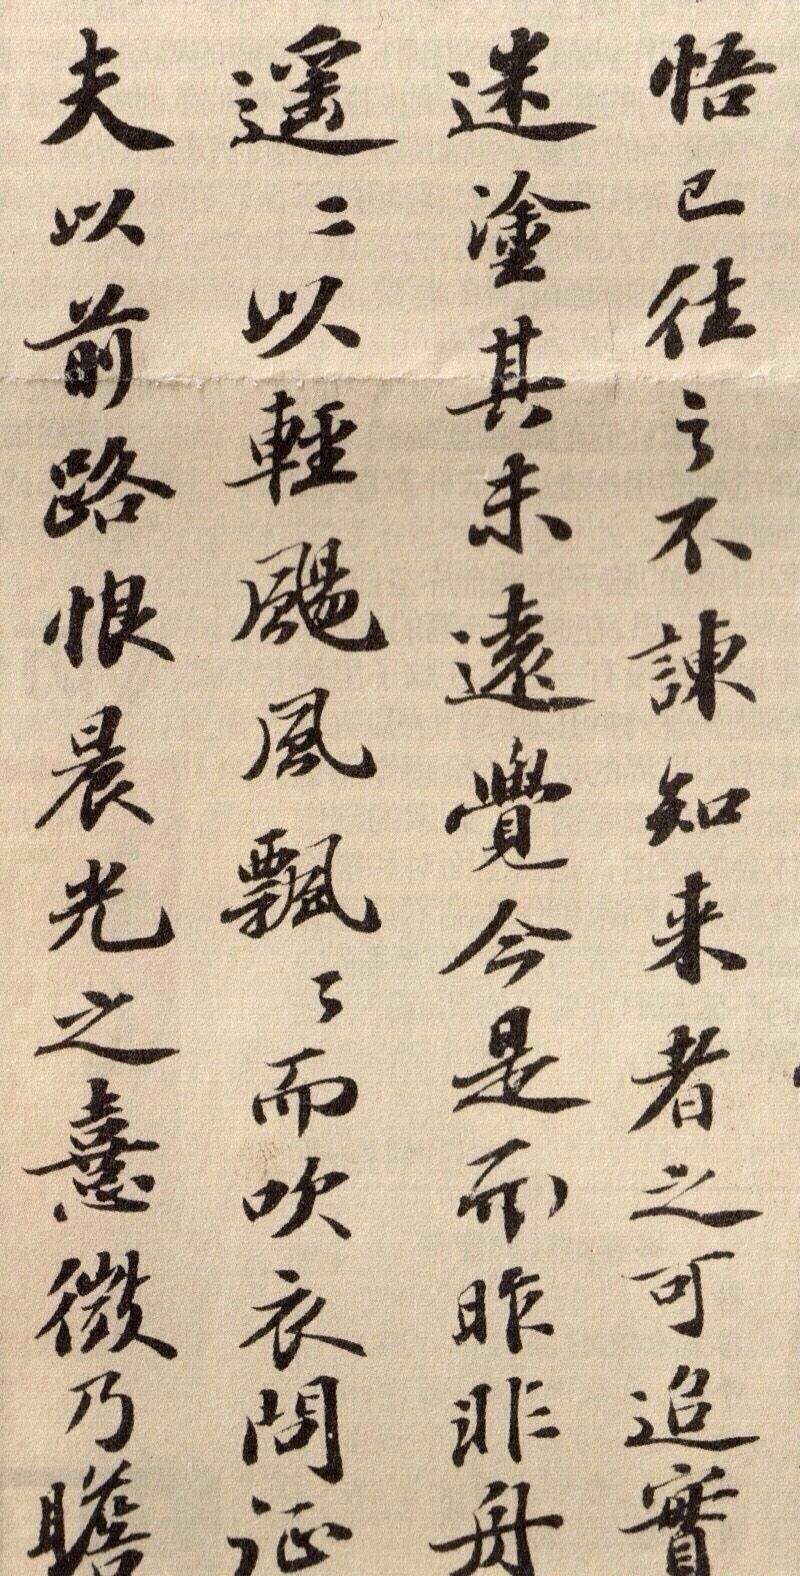 悟已往之不諫知来者之可追實
迷塗其未遠覺今是而昨非舟
遥〻以輕颺風飄〻而吹衣問征
夫以前路恨晨光之憙微乃瞻